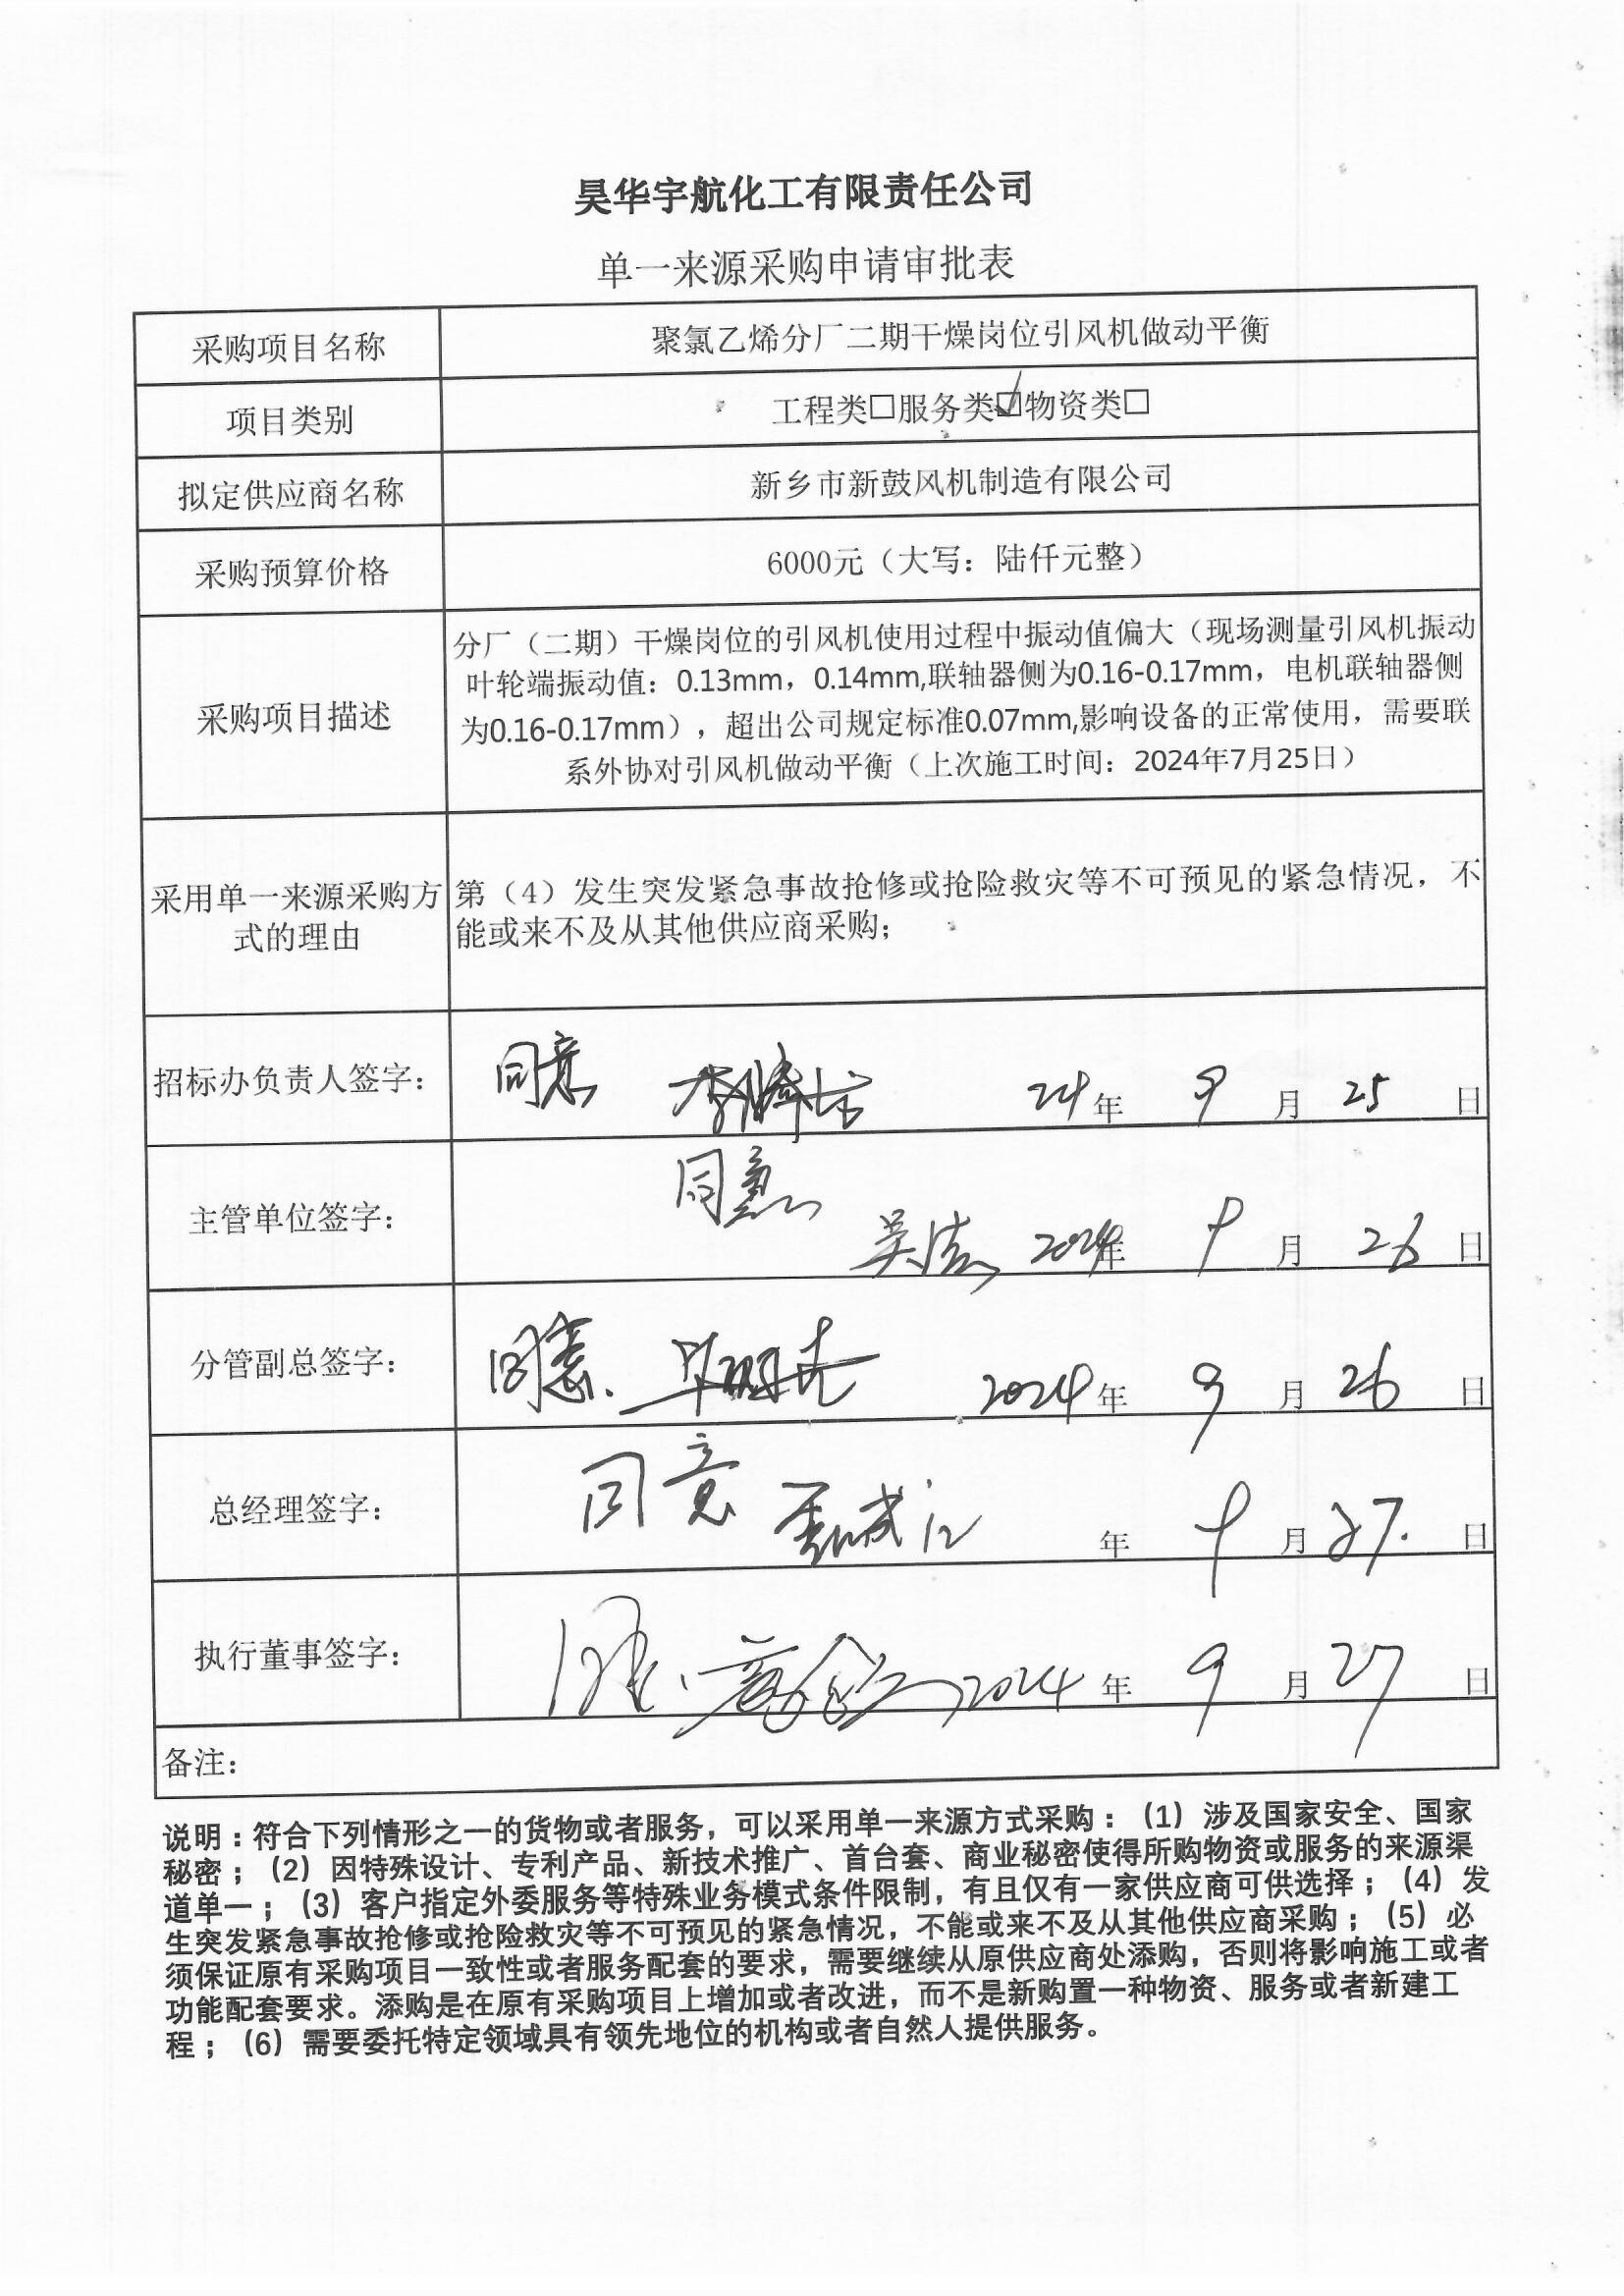 昊华宇航化工有限责任公司
单一来源采购申请审批表
采购项目名称
聚氯乙烯分厂二期干燥岗位引风机做动平衡
项目类别
工程类□服务类☑物资类□
拟定供应商名称
新乡市新鼓风机制造有限公司
采购预算价格
6000元（大写：陆仟元整）
采购项目描述
分厂（二期）干燥岗位的引风机使用过程中振动值偏大（现场测量引风机振动
叶轮端振动值：0.13mm，0.14mm,联轴器侧为0.16-0.17mm，电机联轴器侧
为0.16-0.17mm），超出公司规定标准0.07mm,影响设备的正常使用，需要联
系外协对引风机做动平衡（上次施工时间：2024年7月25日）
采用单一来源采购方
式的理由
第（4）发生突发紧急事故抢修或抢险救灾等不可预见的紧急情况，不
能或来不及从其他供应商采购；
招标办负责人签字：
同意 24年 9月 25日
主管单位签字：
同意
2024年 9月 26日
分管副总签字：
同意. 2024年 9月 26日
总经理签字：
同意 年 9月 27.日
执行董事签字：
2024年 9月 27日
备注：
说明：符合下列情形之一的货物或者服务，可以采用单一来源方式采购：（1）涉及国家安全、国家
秘密；（2）因特殊设计、专利产品、新技术推广、首台套、商业秘密使得所购物资或服务的来源渠
道单一；（3）客户指定外委服务等特殊业务模式条件限制，有且仅有一家供应商可供选择；（4）发
生突发紧急事故抢修或抢险救灾等不可预见的紧急情况，不能或来不及从其他供应商采购；（5）必
须保证原有采购项目一致性或者服务配套的要求，需要继续从原供应商处添购，否则将影响施工或者
功能配套要求。添购是在原有采购项目上增加或者改进，而不是新购置一种物资、服务或者新建工
程；（6）需要委托特定领域具有领先地位的机构或者自然人提供服务。